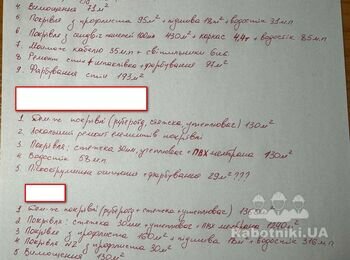 4. Вимощення 73м²
5. Покрівля з профлиста 95м² + підшива 18м² + водостік 31мп
6. Покрівля з сендвіч панелей 100мм 430м² + каркас 4,4т + водостік 85мп
7. Монтаж кабелю 35мп + світильники 6шт.
8. Ремонт стін + шпаклівка + фарбування 97м²
9. Фарбування стін 193м²
1. покрівлі (рубероїд, стяжка, утеплювач) 130м²
2. Локальний ремонт елементів покрівлі
3. Покрівля: стяжка 30мм, утеплювач + ПВХ мембрана 130м²
4. Водостік 68мп
5. Піскоструминна очистка + фарбування 29м² ???
1. покрівлі (рубероїд + стяжка + утеплювач)
2. Покрівля: стяжка 30мм + утеплювач + ПВХ мембрана 1240м²
3. Покрівля з профлиста 160м² + підшива 18м² + водостік 316мп
4. Покрівля з профлиста 30м²
5. Вимощення 130м²
Rabotniki.UA